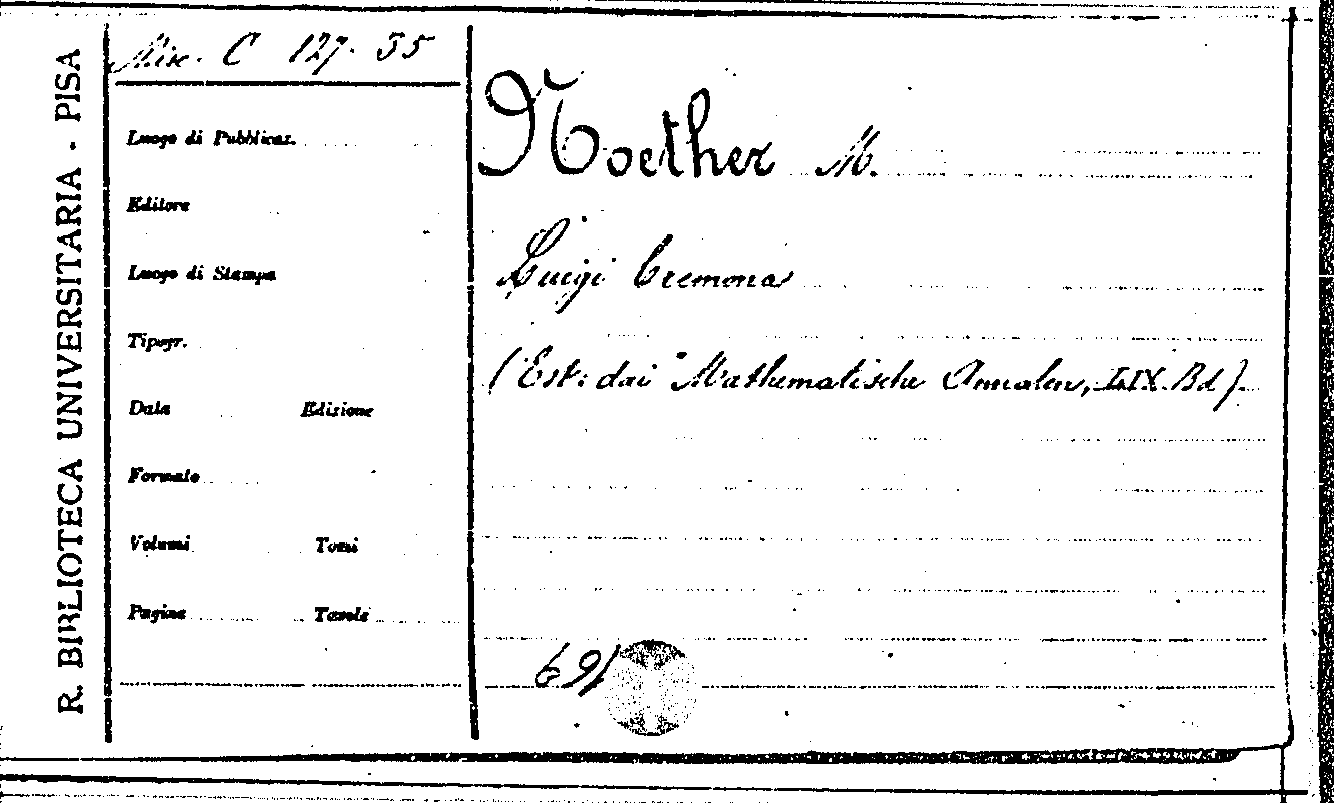 R. BIBLIOTECA UNIVERSITARIA - PISA
Misc. C 127. 35
Luogo di Pubblicaz.
Editore
Luogo di Stampa
Tipogr.
Data Edizione
Formato
Volumi Tomi
Pagine Tavole
Noether M.
Luigi Cremona
(Est. dai "Mathematische Annalen, LIX. Bd).